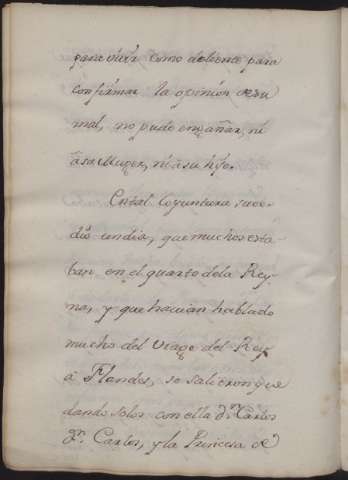 para vivir como doliente para
confirmar la opinion de su
mal, no pudo engañar, ni
â su Muger, ni â su hijo.
En tal Coyuntura, suce-
diô un dia, que muchos esta-
ban en el quarto de la Rey-
na, y que havian hablado
mucho del Viage del Rey
â Flandes, se salieron que
dando solos con ella Dn Carlos
Dn Carlos, y la Princesa de